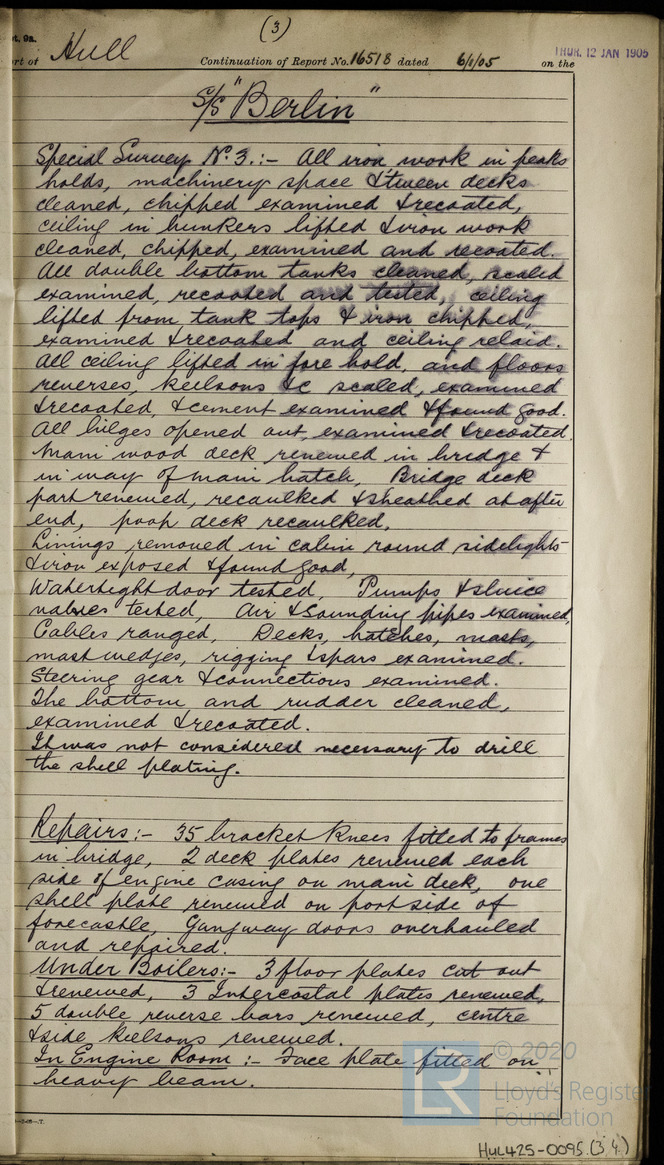 (3)
pt. 9a.
THUR. 12 JAN 1905
rt of Hull Continuation of Report No. 16518 dated 6/1/05 on the
S/S "Berlin"
Special Survey No. 3. :- All iron work in peaks
holds, machinery space & tween decks
cleaned, chipped examined & recoated,
ceiling in bunkers lifted & iron work
cleaned, chipped, examined and recoated.
All double bottom tanks cleaned, scaled
examined, recoated and tested, ceiling
lifted from tank tops & iron chipped,
examined & recoated and ceiling relaid.
All ceiling lifted in fore hold, and floors
reverses, keelsons &c scaled, examined
& recoated, & cement examined & found good.
All bilges opened out, examined & recoated.
Main wood deck renewed in bridge &
in way of main hatch, Bridge deck
part renewed, recaulked & sheathed at after
end, poop deck recaulked.
Linings removed in cabin round sidelights
& iron exposed & found good,
Watertight door tested, Pumps & sluice
valves tested, Air & Sounding pipes examined,
Cables ranged, Decks, hatches, masts,
mast wedges, rigging & spars examined.
Steering gear & connections examined.
The bottom and rudder cleaned,
examined & recoated.
It was not considered necessary to drill
the shell plating.
Repairs :- 35 bracket knees fitted to frames
in bridge, 2 deck plates renewed each
side of engine casing on main deck, one
shell plate renewed on port side of
forecastle, Gangway doors overhauled
and repaired.
Under Boilers :- 3 floor plates cut out
& renewed, 3 Intercostal plates renewed,
5 double reverse bars renewed, centre
& side keelsons renewed.
In Engine Room :- Face plate fitted on
heavy beam.
© 2020
LR
Lloyd's Register
Foundation
HUL425-0095 (3/4)